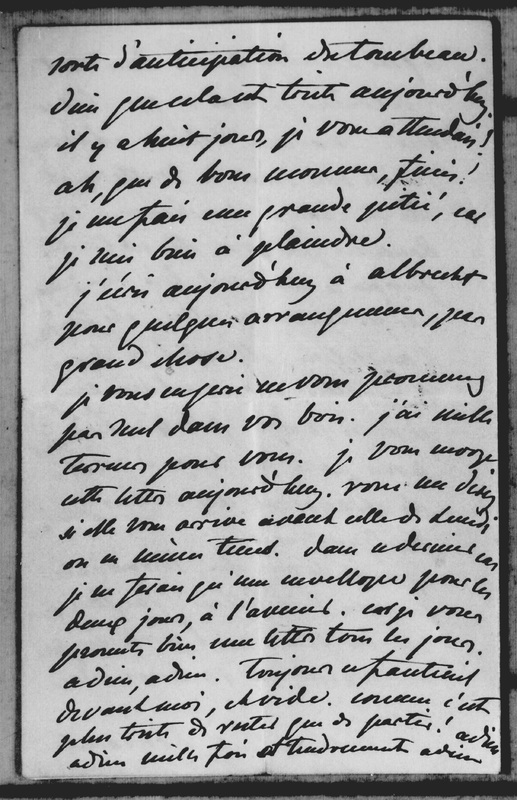 sorte d'anticipation du tombeau.
dieu que cela est triste aujourd'huy.
il y a huit jours, je vous attendais!
ah, que de bons momens, finis!
je me fais une grande pitié, car
je suis bien à plaindre.
j'écris aujourd'huy à albrecht
pour quelques arrangemens, pas
grand chose.
je vous en prie ne vous promenez
pas seul dans vos bois. j'ai mille
terreurs pour vous. je vous envoye
cette lettre aujourd'huy. vous me direz
si elle vous arrive avant celle de lundi
ou en même tems. dans ce dernier cas
je ne ferais qu'une enveloppe pour les
deux jours, à l'avenir. car je vous
promets bien une lettre tous les jours.
adieu, adieu. toujours ce fauteuil
devant moi, et vide. comme c'est
plus triste de rester que de partir! adieu
adieu mille fois et tendrement adieu